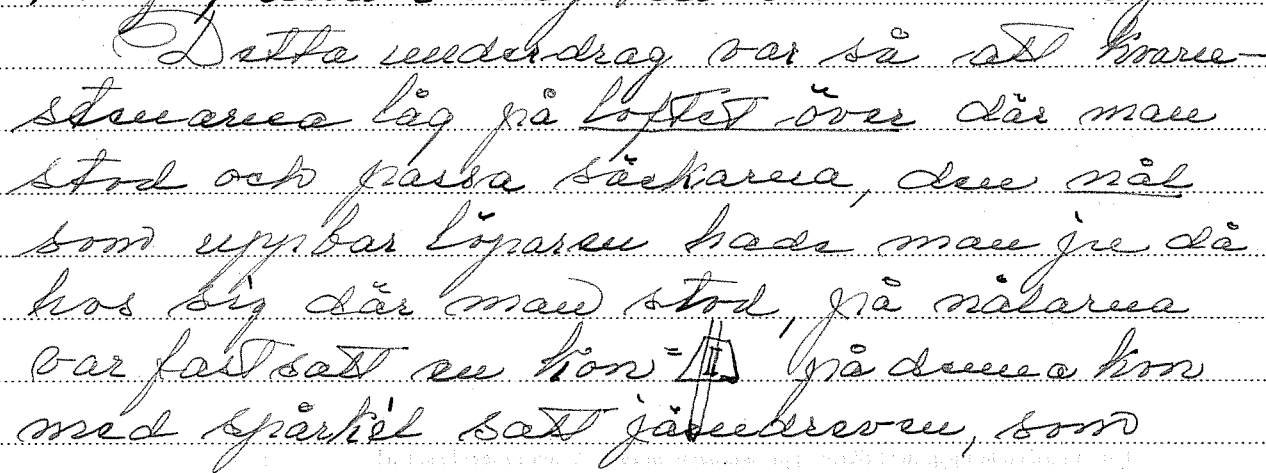 Detta underdrag var så att kvarn-
stenarna låg på loftet över där man
stod och passa säckarna, den nål
som uppbar löparen hade man ju då
hos sig där man stod, på nålarna
var fastsatt en kon = på denna kon
med spårkil satt järndreven, som